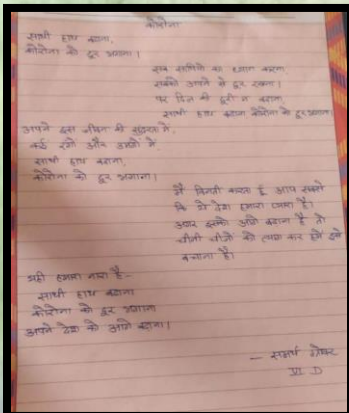 कोरोना
साथी हाथ बढ़ाना,
कोरोना को दूर भगाना।
सब का ध्यान करना
सबको अपने से दूर रखना।
पर दिल की दूरी न बढ़ाना,
साथी हाथ बढ़ाना कोरोना को दूर भगाना।
अपने इस जीवन की में,
कई रंगों और में,
साथी हाथ बढ़ाना,
कोरोना को दूर भगाना।
मैं विनती करता हूँ आप सबसे
कि ये देश हमारा प्यारा है।
अगर इसको आगे बढ़ाना है तो
चीनी चीजों को त्याग कर हमें इसे
बचाना है।
यही हमारा नारा है-
साथी हाथ बढ़ाना
कोरोना को दूर भगाना
अपने देश को आगे बढ़ाना।
- समर्थ ग्रोवर
VI D